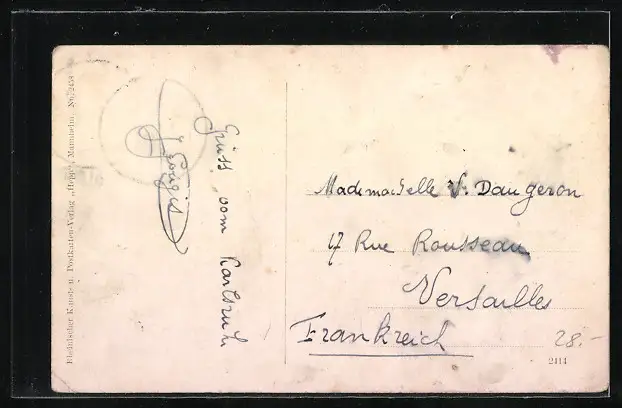 Rheinischer Kunst- u. Postkarten-Verlag „Hepp“, Mannheim. No. 2458
Gruss vom Karlsruhe
Mademoiselle V. Daugeron
17 Rue Rousseau
Versailles
Frankreich
28.-
2414